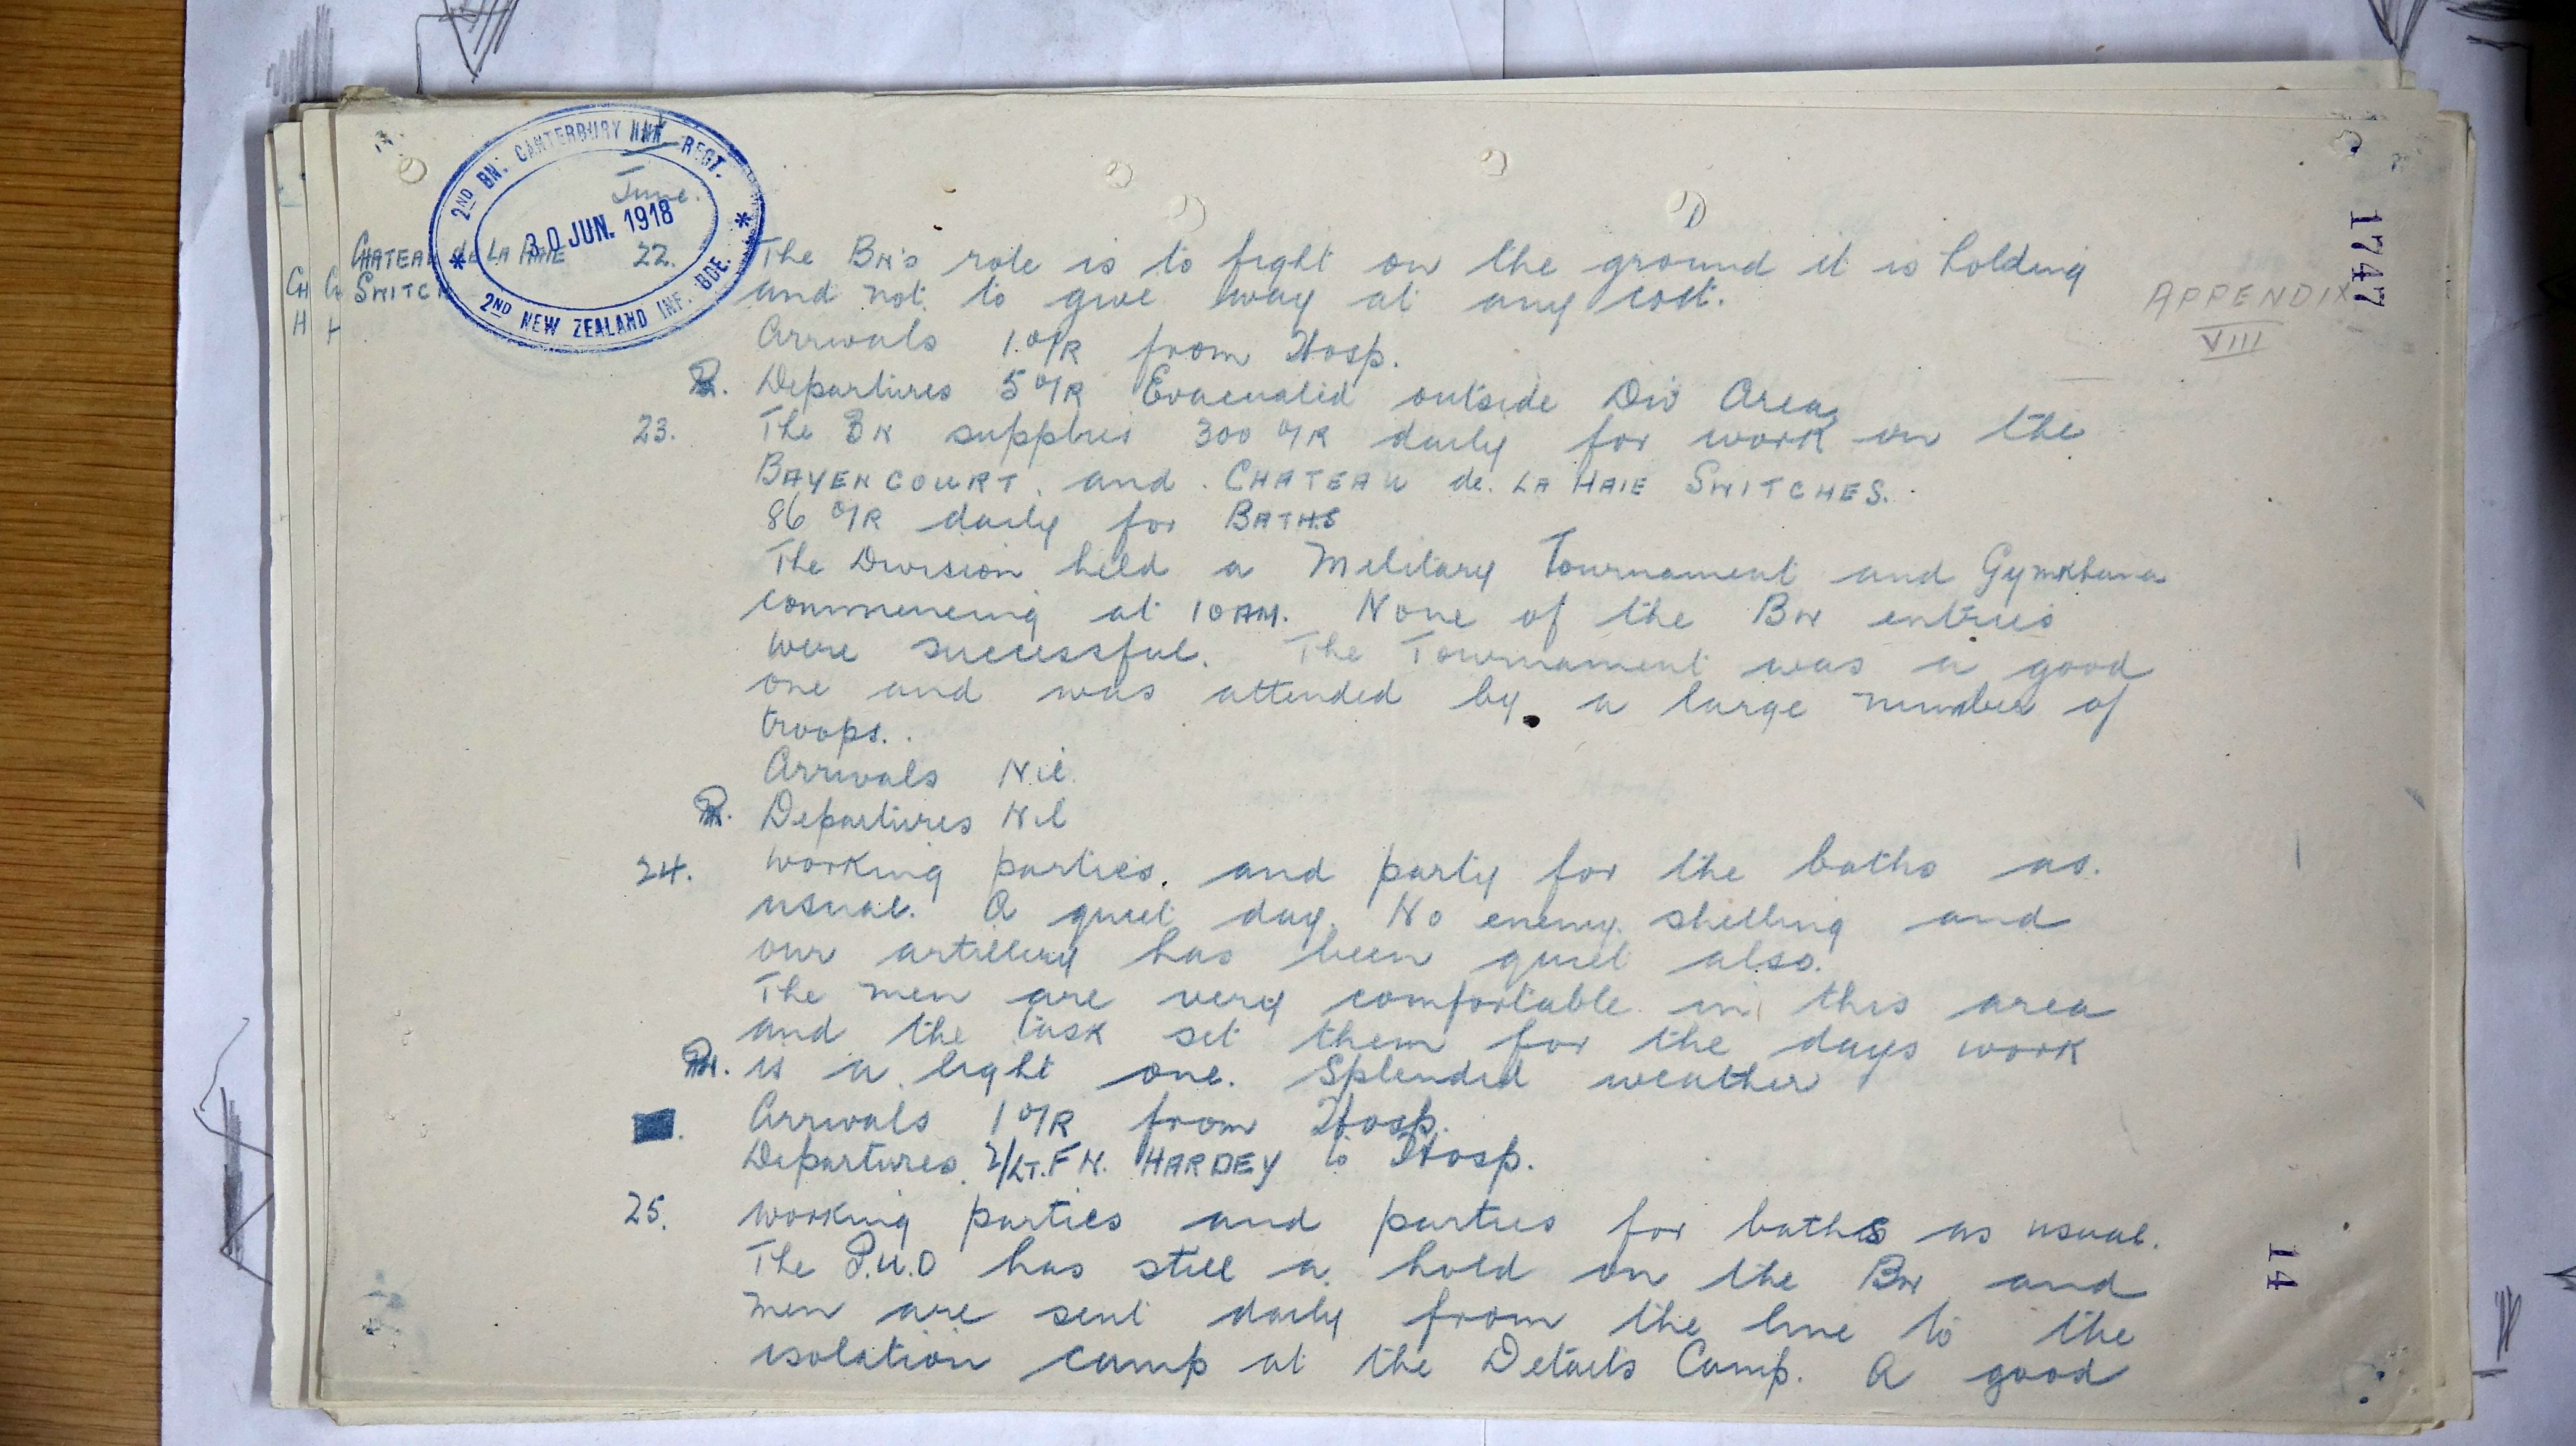 2ND BN. CANTERBURY REGT.
June.
30 JUN. 1918
2ND NEW ZEALAND INF. BDE.
1747
APPENDIX
VIII
CHATEAU de LA HAIE 22. The BN's role is to fight on the ground it is holding
SWITCH and not to give way at any cost.
Arrivals 1 O/R from Hosp.
Departures 5 O/R Evacuated outside Div Area
23. The BN supplies 300 O/R daily for work on the
BAYENCOURT. and CHATEAU de. LA HAIE SWITCHES.
86 O/R daily for BATHS
The Division held a Military Tournament and Gymkhana
commencing at 10 AM. None of the BN entries
were successful. The Tournament was a good
one and was attended by a large number of
troops.
Arrivals Nil.
Departures Nil
24. Working parties. and party for the baths as.
usual. A quiet day. No enemy shelling and
our artillery has been quiet also.
The men are very comfortable in this area
and the task set them for the days work
is a light one. Splendid weather
Arrivals 1 O/R from Hosp.
Departures. 2/LT. F N. HARDEY to Hosp.
25. Working parties and parties for baths as usual.
The P.U.O has still a hold on the BN and
men are sent daily from the line to the
isolation camp at the Details Camp. A good
14
CH
H